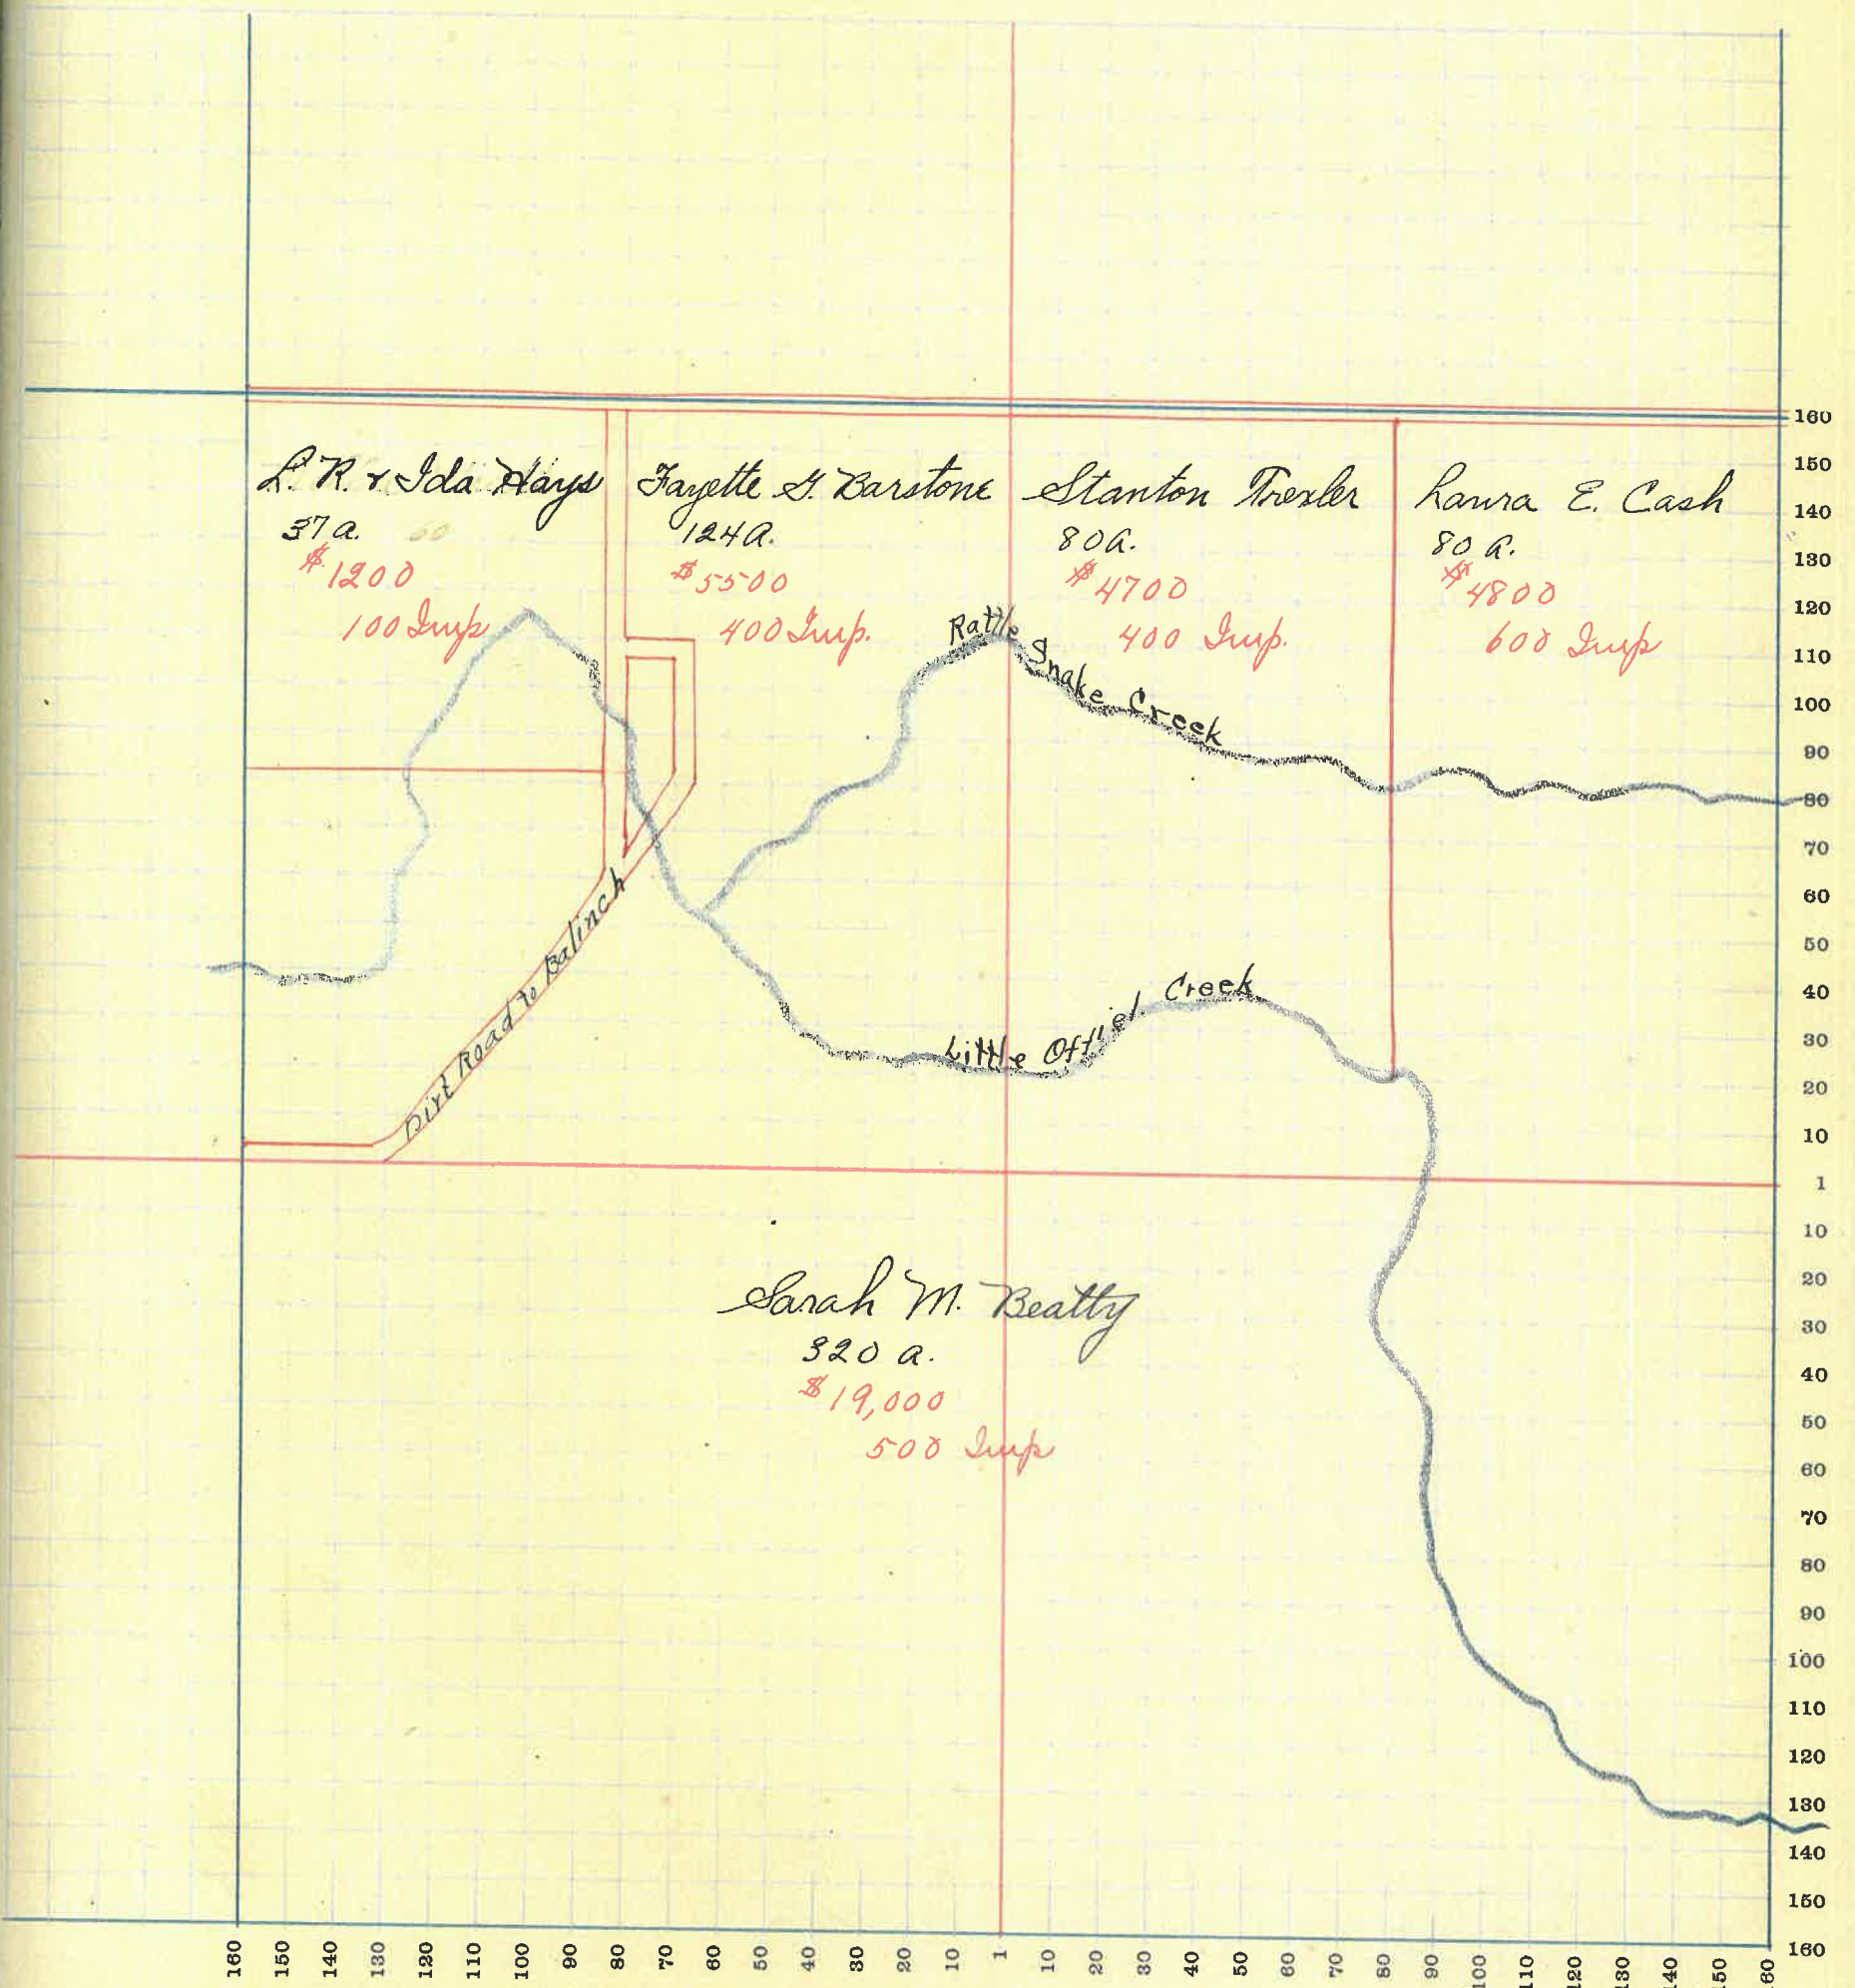 L. R. & Ida Hays
37 a.
60
$1200
100 Imp
Fayette G. Barstone
124 A.
$5500
400 Imp.
Stanton Trexler
80 a.
$4700
400 Imp.
Laura E. Cash
80 a.
$4800
600 Imp
Rattle Snake Creek
Dirt Road to Balinch
Little Creek
Sarah M. Beatty
320 a.
$19,000
500 Imp
160
150
140
130
120
110
100
90
80
70
60
50
40
30
20
10
1
10
20
30
40
50
60
70
80
90
100
110
120
130
140
150
160
160 150 140 130 120 110 100 90 80 70 60 50 40 30 20 10 1 10 20 30 40 50 60 70 80 90 100 110 120 130 140 150 160